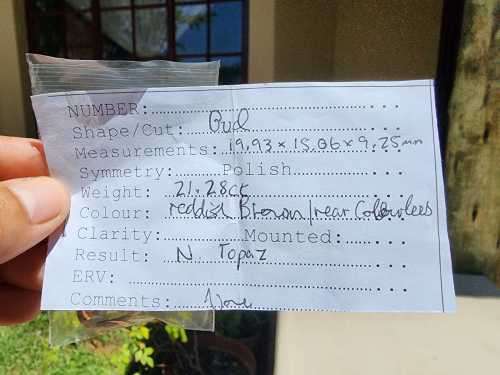 NUMBER:
Shape/Cut: Oval
Measurements: 19.93 x 15.06 x 9.25mm
Symmetry: Polish
Weight: 21.28ct
Colour: reddish Brown/near Colourless
Clarity: Mounted:
Result: N Topaz
ERV:
Comments: None